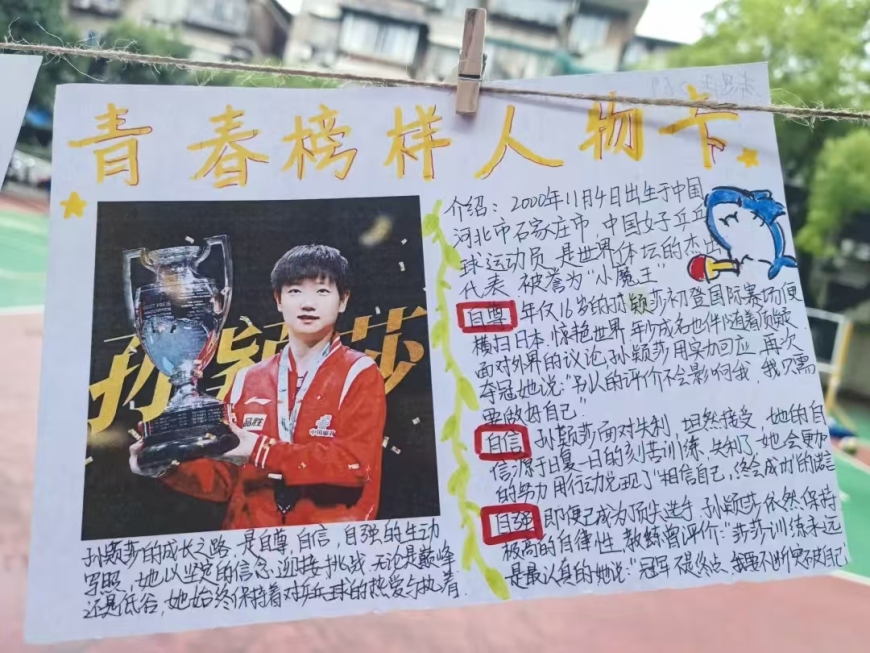 青春榜样人物卡
孙颖莎
品胜
中国乒协
介绍：2000年11月4日出生于中国
河北市石家庄市 中国女子乒乓
球运动员，是世界体坛的杰出
代表 被誉为“小魔王”
自尊 年仅16岁的孙颖莎初登国际赛场便
横扫日本，惊艳世界 年少成名也伴随着质疑
面对外界的议论，孙颖莎用实力回应，再次
夺冠她说：“别人的评价不会影响我，我只需
要做好自己”
自信 孙颖莎面对失利 坦然接受 她的自
信源于日复一日的刻苦训练，失利了，她会更加
的努力 用行动兑现了“相信自己，终会成功”的诺
自强 即便已成为顶尖选手 孙颖莎依然保持
极高的自律性，教练曾评价：“莎莎训练永远
是最认真的她说：“冠军不是终点，我要不断突破自己
孙颖莎的成长之路，是自尊，自信，自强的生动
写照，她以坚定的信念迎接挑战 无论是巅峰
还是低谷，她始终保持着对乒乓球的热爱与执着